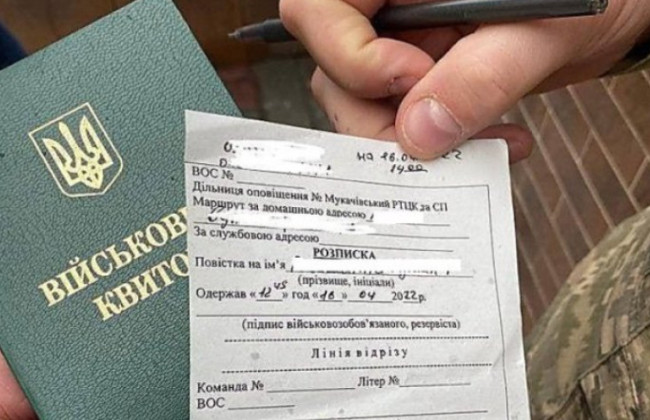 ВІЙСЬКОВ
КВИТО
на 18.04 22
14 00
ВОС №
Дільниця оповіщення № Мукачівський РТЦК та СП
Маршрут за домашньою адресою
За службовою адресою
РОЗПИСКА
Повістка на ім'я
(прізвище, ініціали)
Одержав «12 45» год «16» 04 2022р.
(підпис військовозобов'язаного, резервіста)
Лінія відрізу
Команда № Літер №
ВОС